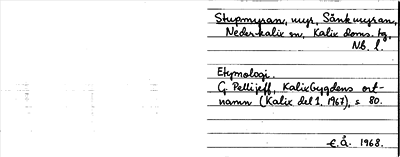 Stupmyran, myr, Sänkmyran,
Neder-kalix sn, Kalix doms. hg,
Nb. l.
Etymologi.
G. Pellijeff, Kalixbygdens ort-
namn (Kalix del 1, 1967), s 80.
E.Å. 1968.